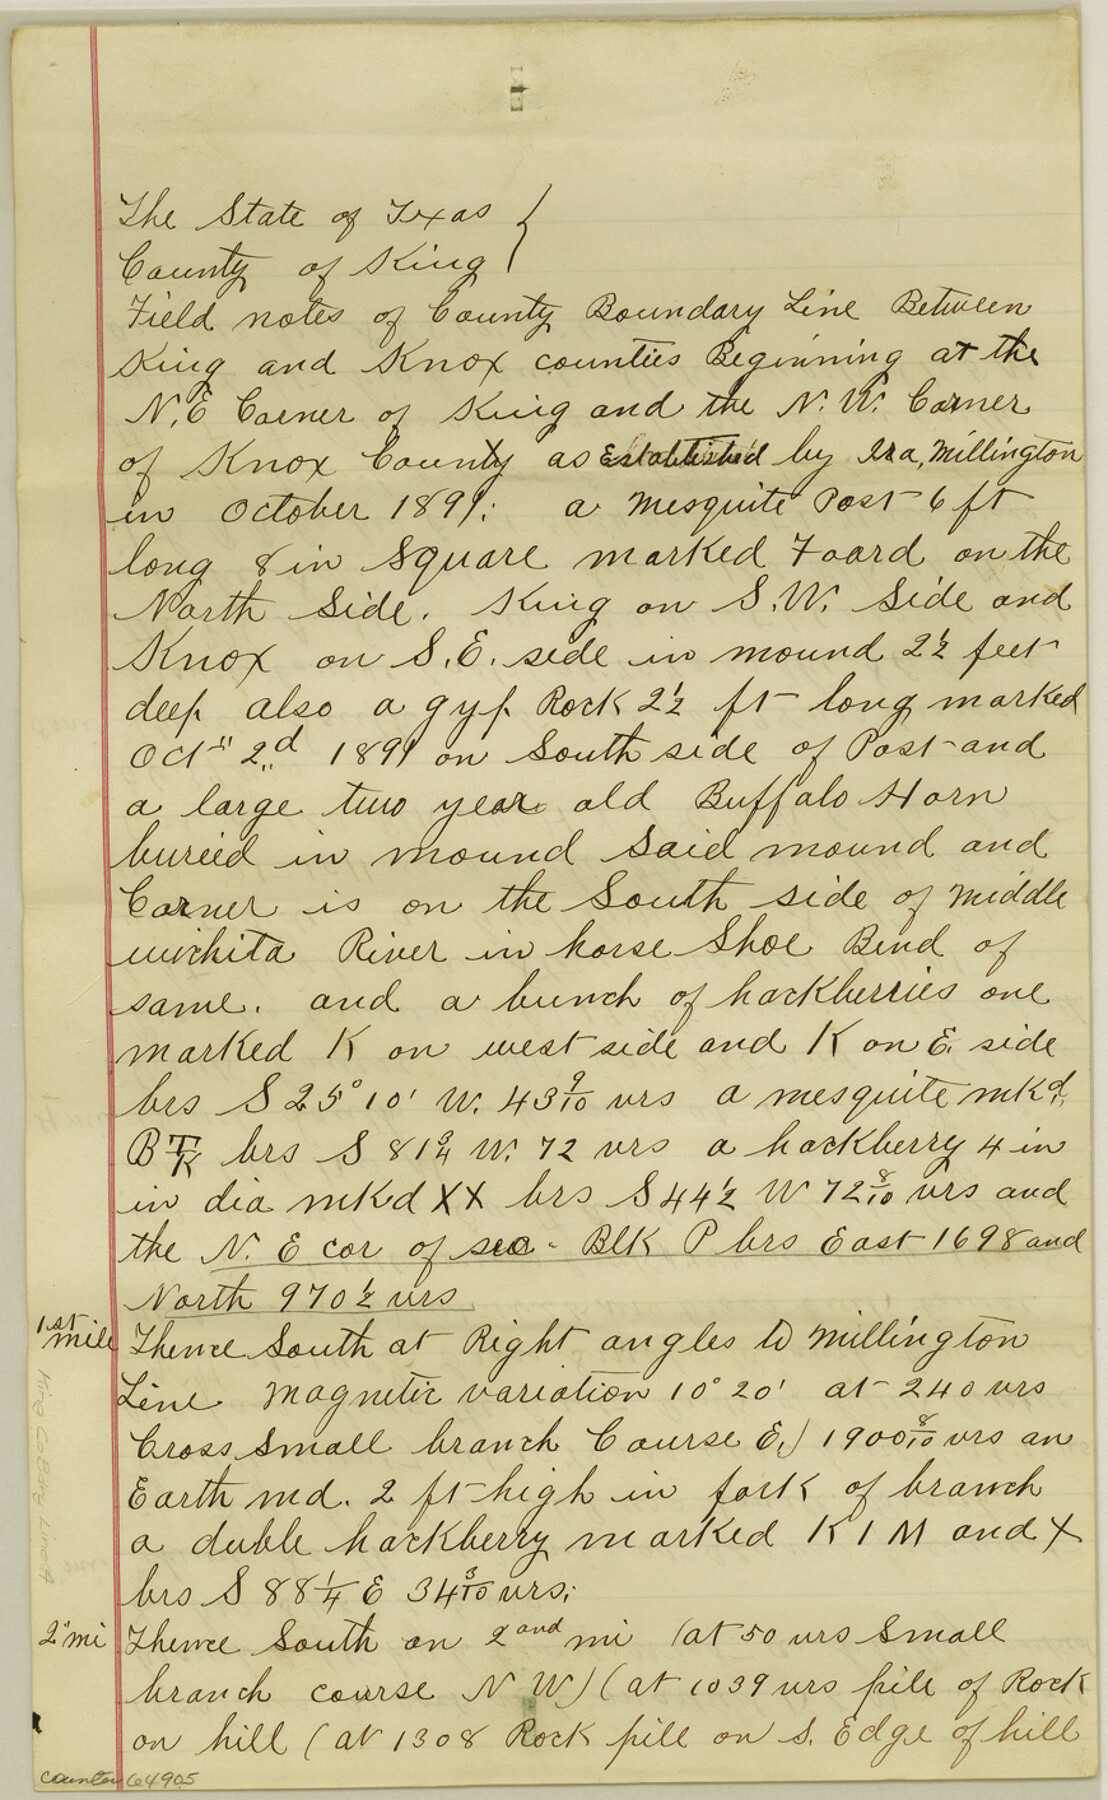 The State of Texas }
County of King
Field notes of County Boundary Line Between
King and Knox counties Beginning at the
N.E Corner of King and the N.W. Corner
of Knox County as Established by Ira, Millington
in October 1891: a Mesquite Post 6 ft
long 8 in Square marked Foard on the
North Side. King on S.W. Side and
Knox on S.E. side in mound 2½ feet
deep also a gyp Rock 2½ ft long marked
Oct" 2,,d 1891 on South side of Post and
a large two year old Buffalo Horn
buried in mound Said mound and
Corner is on the South side of middle
wichita River in horse Shoe Bend of
same. and a bunch of hackberries one
marked K on west side and K on E. side
brs S 25° 10' W. 43 9/10 vrs a mesquite mkd.
B T/K brs S 81 W. 72 vrs a hackberry 4 in
in dia mkd XX brs S 44½ W 72 8/10 vrs and
the N. E cor of Blk P brs East 1698 and
North 970½ vrs
1st mile Thence South at Right angles to Millington
Line Magnetic variation 10° 20' at 240 vrs
Cross Small branch Course E,) 1900 8/10 vrs an
Earth md. 2 ft high in fork of branch
a duble hackberry marked K 1 M and X
brs S 88¼ E 34 3/10 vrs;
2" mi Thence South on 2and mi (at 50 vrs Small
branch course N W) (at 1039 vrs pile of Rock
on hill (at 1308 Rock pill on S. Edge of hill
King Co. Bdry Line
counter 64905